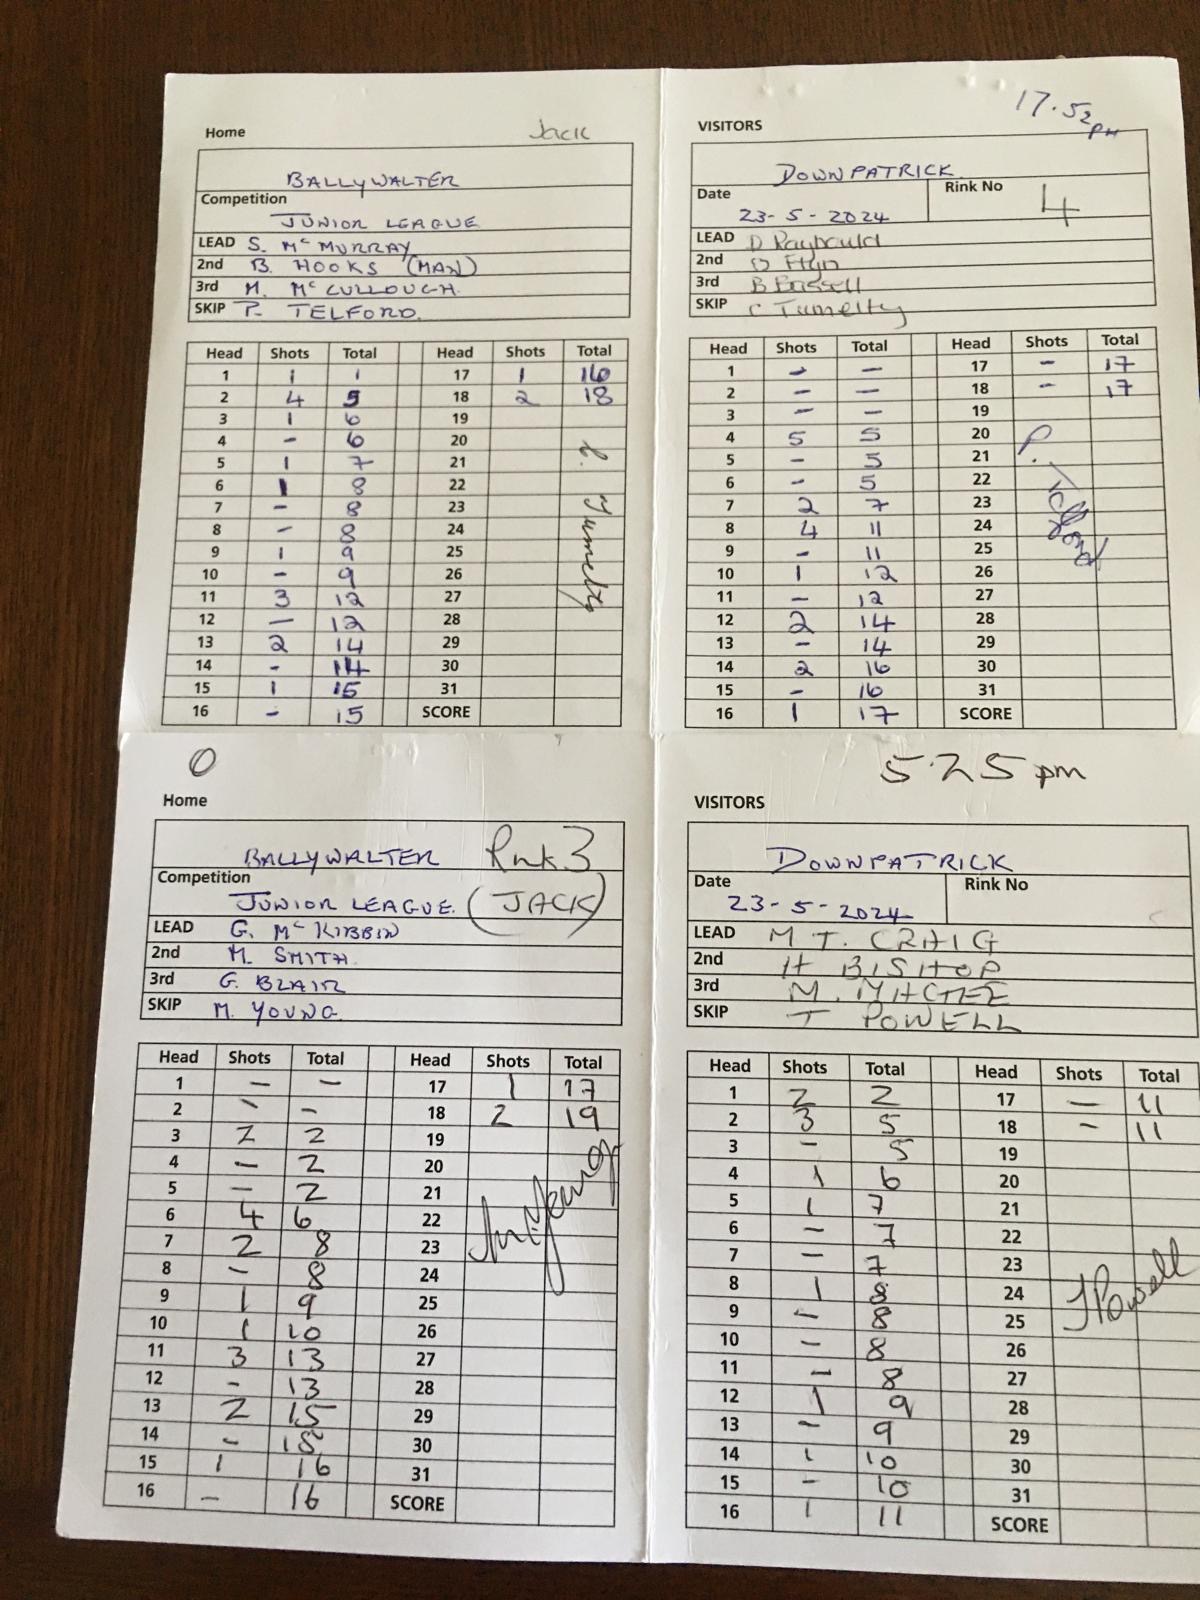 Home Jack
BALLYWALTER
Competition
JUNIOR LEAGUE
LEAD S. McMURRAY
2nd B. HOOKS (MAN)
3rd M. McCULLOUGH.
SKIP P. TELFORD.
Head Shots Total Head Shots Total
1 1 1 17 1 16
2 4 5 18 2 18
3 1 6 19
4 - 6 20
5 1 7 21
6 1 8 22
7 - 8 23
8 - 8 24
9 1 9 25
10 - 9 26
11 3 12 27
12 - 12 28
13 2 14 29
14 - 14 30
15 1 15 31
16 - 15 SCORE
Tumelty
17.52pm
VISITORS
DOWNPATRICK
Date Rink No 4
23-5-2024
LEAD D Raybould
2nd
3rd B
SKIP C Tumelty
Head Shots Total Head Shots Total
1 - - 17 - 17
2 - - 18 - 17
3 - - 19
4 5 5 20
5 - 5 21
6 - 5 22
7 2 7 23
8 4 11 24
9 - 11 25
10 1 12 26
11 - 12 27
12 2 14 28
13 - 14 29
14 2 16 30
15 - 16 31
16 1 17 SCORE
P. Telford
0
Home
BALLYWALTER Rnk 3
Competition
JUNIOR LEAGUE. (JACK)
LEAD G. McKIBBIN
2nd M. SMITH.
3rd G. BLAIR
SKIP M. YOUNG.
Head Shots Total Head Shots Total
1 - - 17 1 17
2 - - 18 2 19
3 2 2 19
4 - 2 20
5 - 2 21
6 4 6 22
7 2 8 23
8 - 8 24
9 1 9 25
10 1 10 26
11 3 13 27
12 - 13 28
13 2 15 29
14 - 15 30
15 1 16 31
16 - 16 SCORE
M. Young
5.25pm
VISITORS
DOWNPATRICK
Date Rink No
23-5-2024
LEAD M T. CRAIG
2nd H BISHOP
3rd M.
SKIP T POWELL
Head Shots Total Head Shots Total
1 2 2 17 - 11
2 3 5 18 - 11
3 - 5 19
4 1 6 20
5 1 7 21
6 - 7 22
7 - 7 23
8 1 8 24
9 - 8 25
10 - 8 26
11 - 8 27
12 1 9 28
13 - 9 29
14 1 10 30
15 - 10 31
16 1 11 SCORE
T Powell